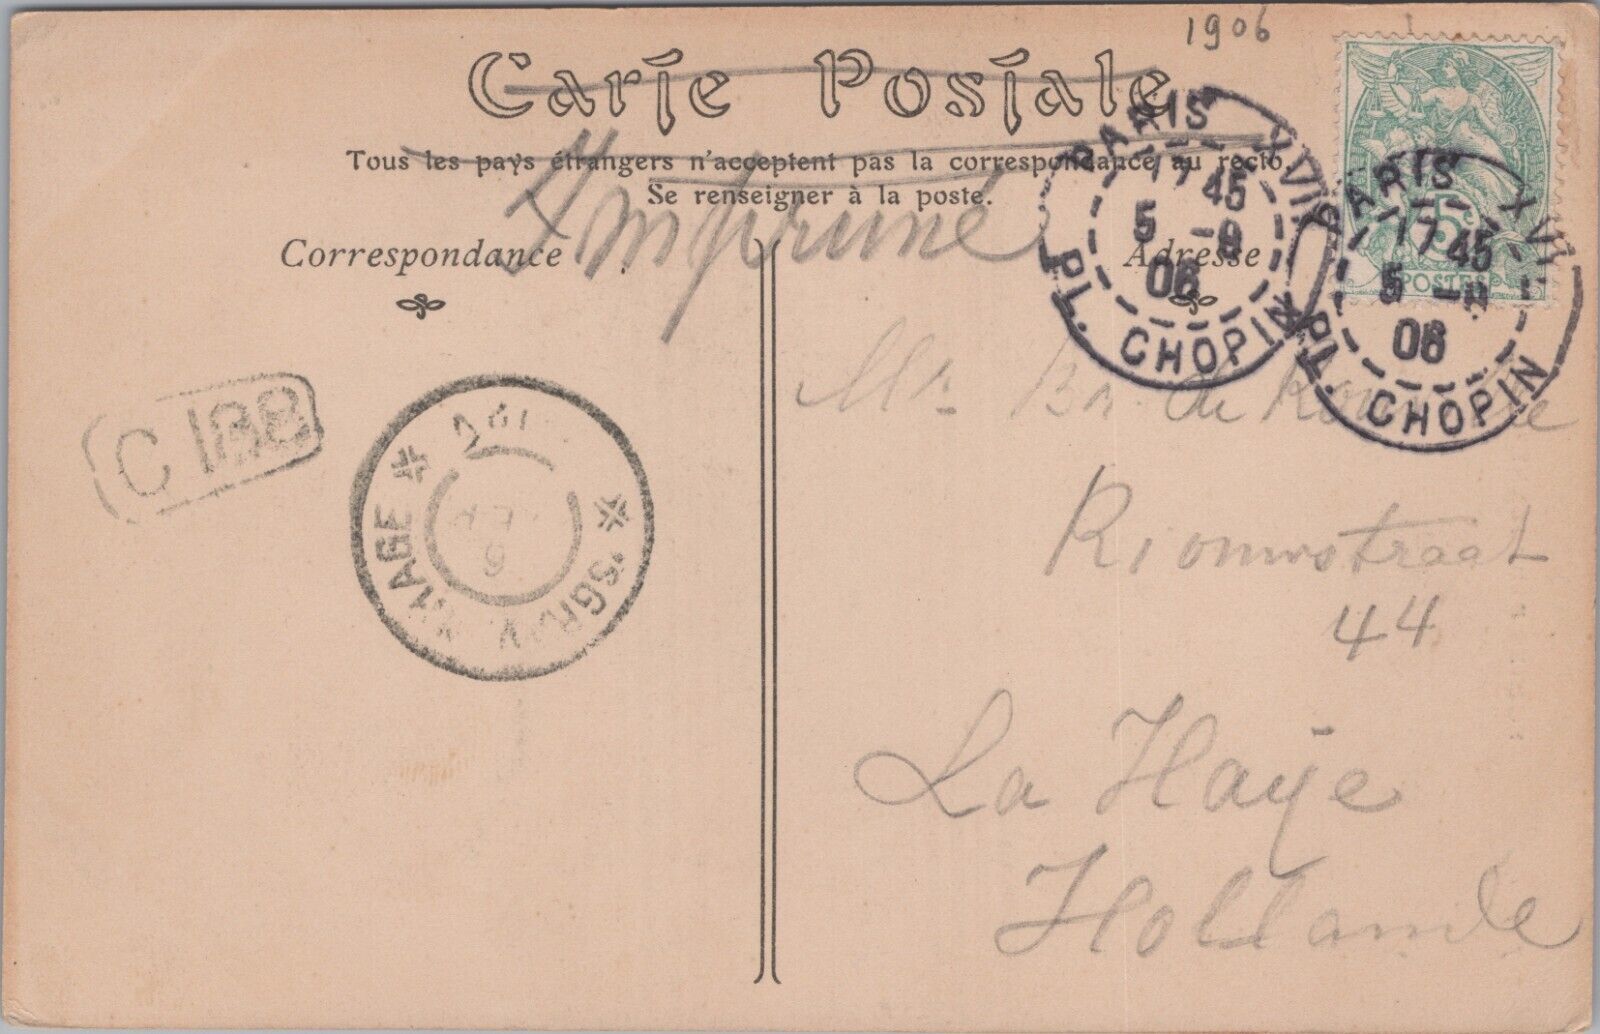 1906
Carte Postale
Tous les pays étrangers n'acceptent pas la correspondance au recto,
Se renseigner à la poste.
Imprimé
Correspondance
Adresse
PARIS XVI
17 45
5 - 9
06
PL. CHOPIN
PARIS XVI
17 45
5 -
06
PL. CHOPIN
5c
POSTES
C 188
'SGRAVENHAGE
6
Mr
de
straat
44
La Haÿe
Hollande